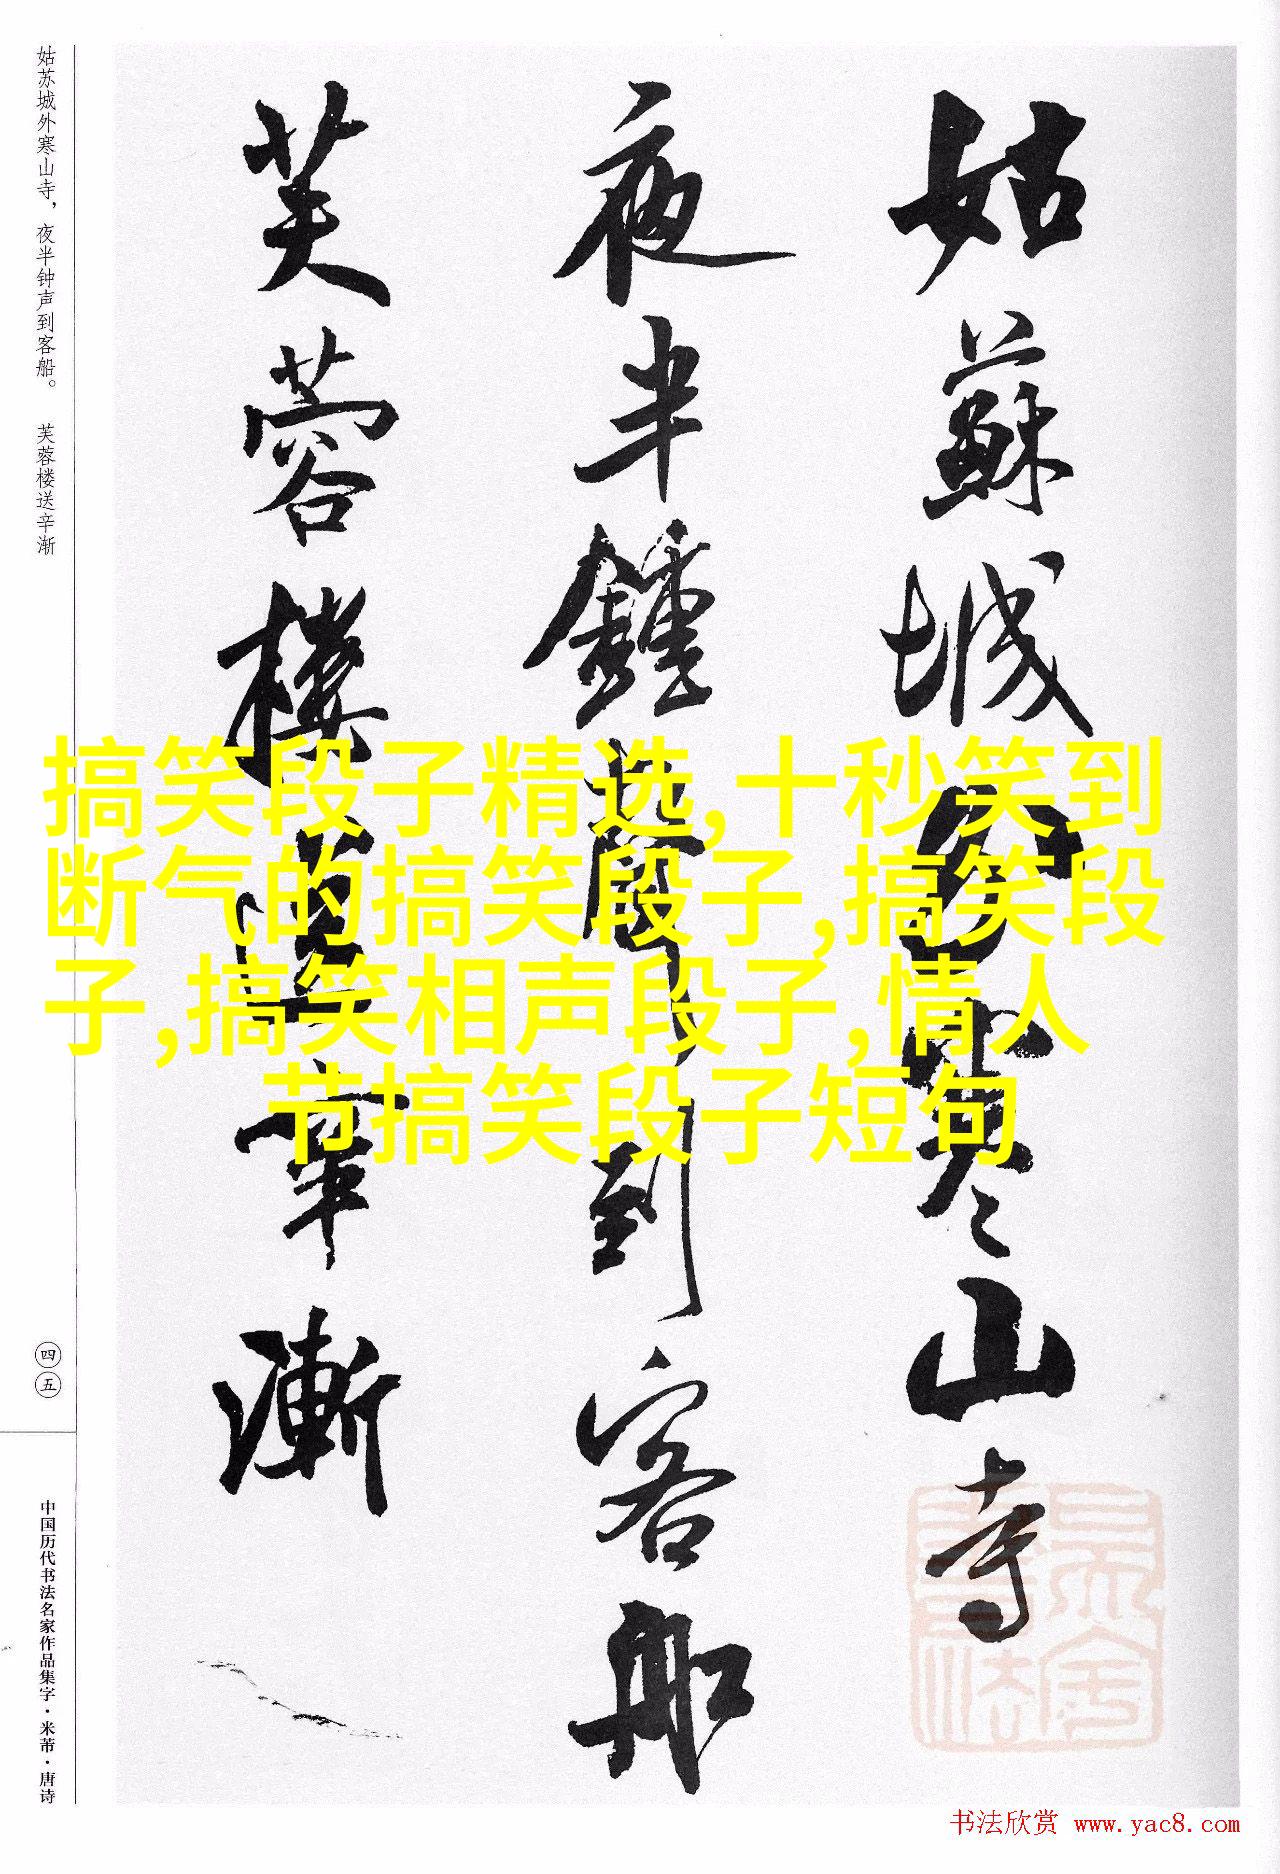 姑苏城外寒山寺，夜半钟声到客船。 芙蓉楼送辛渐
姑蘇城外寒山寺
夜半鐘聲到客船
芙蓉樓送辛漸
搞笑段子精选,十秒笑到
断气的搞笑段子,搞笑段
子,搞笑相声段子,情人
节搞笑段子短句
四五
中国历代书法名家作品集字·米芾·唐诗
书法欣赏 www.yac8.com